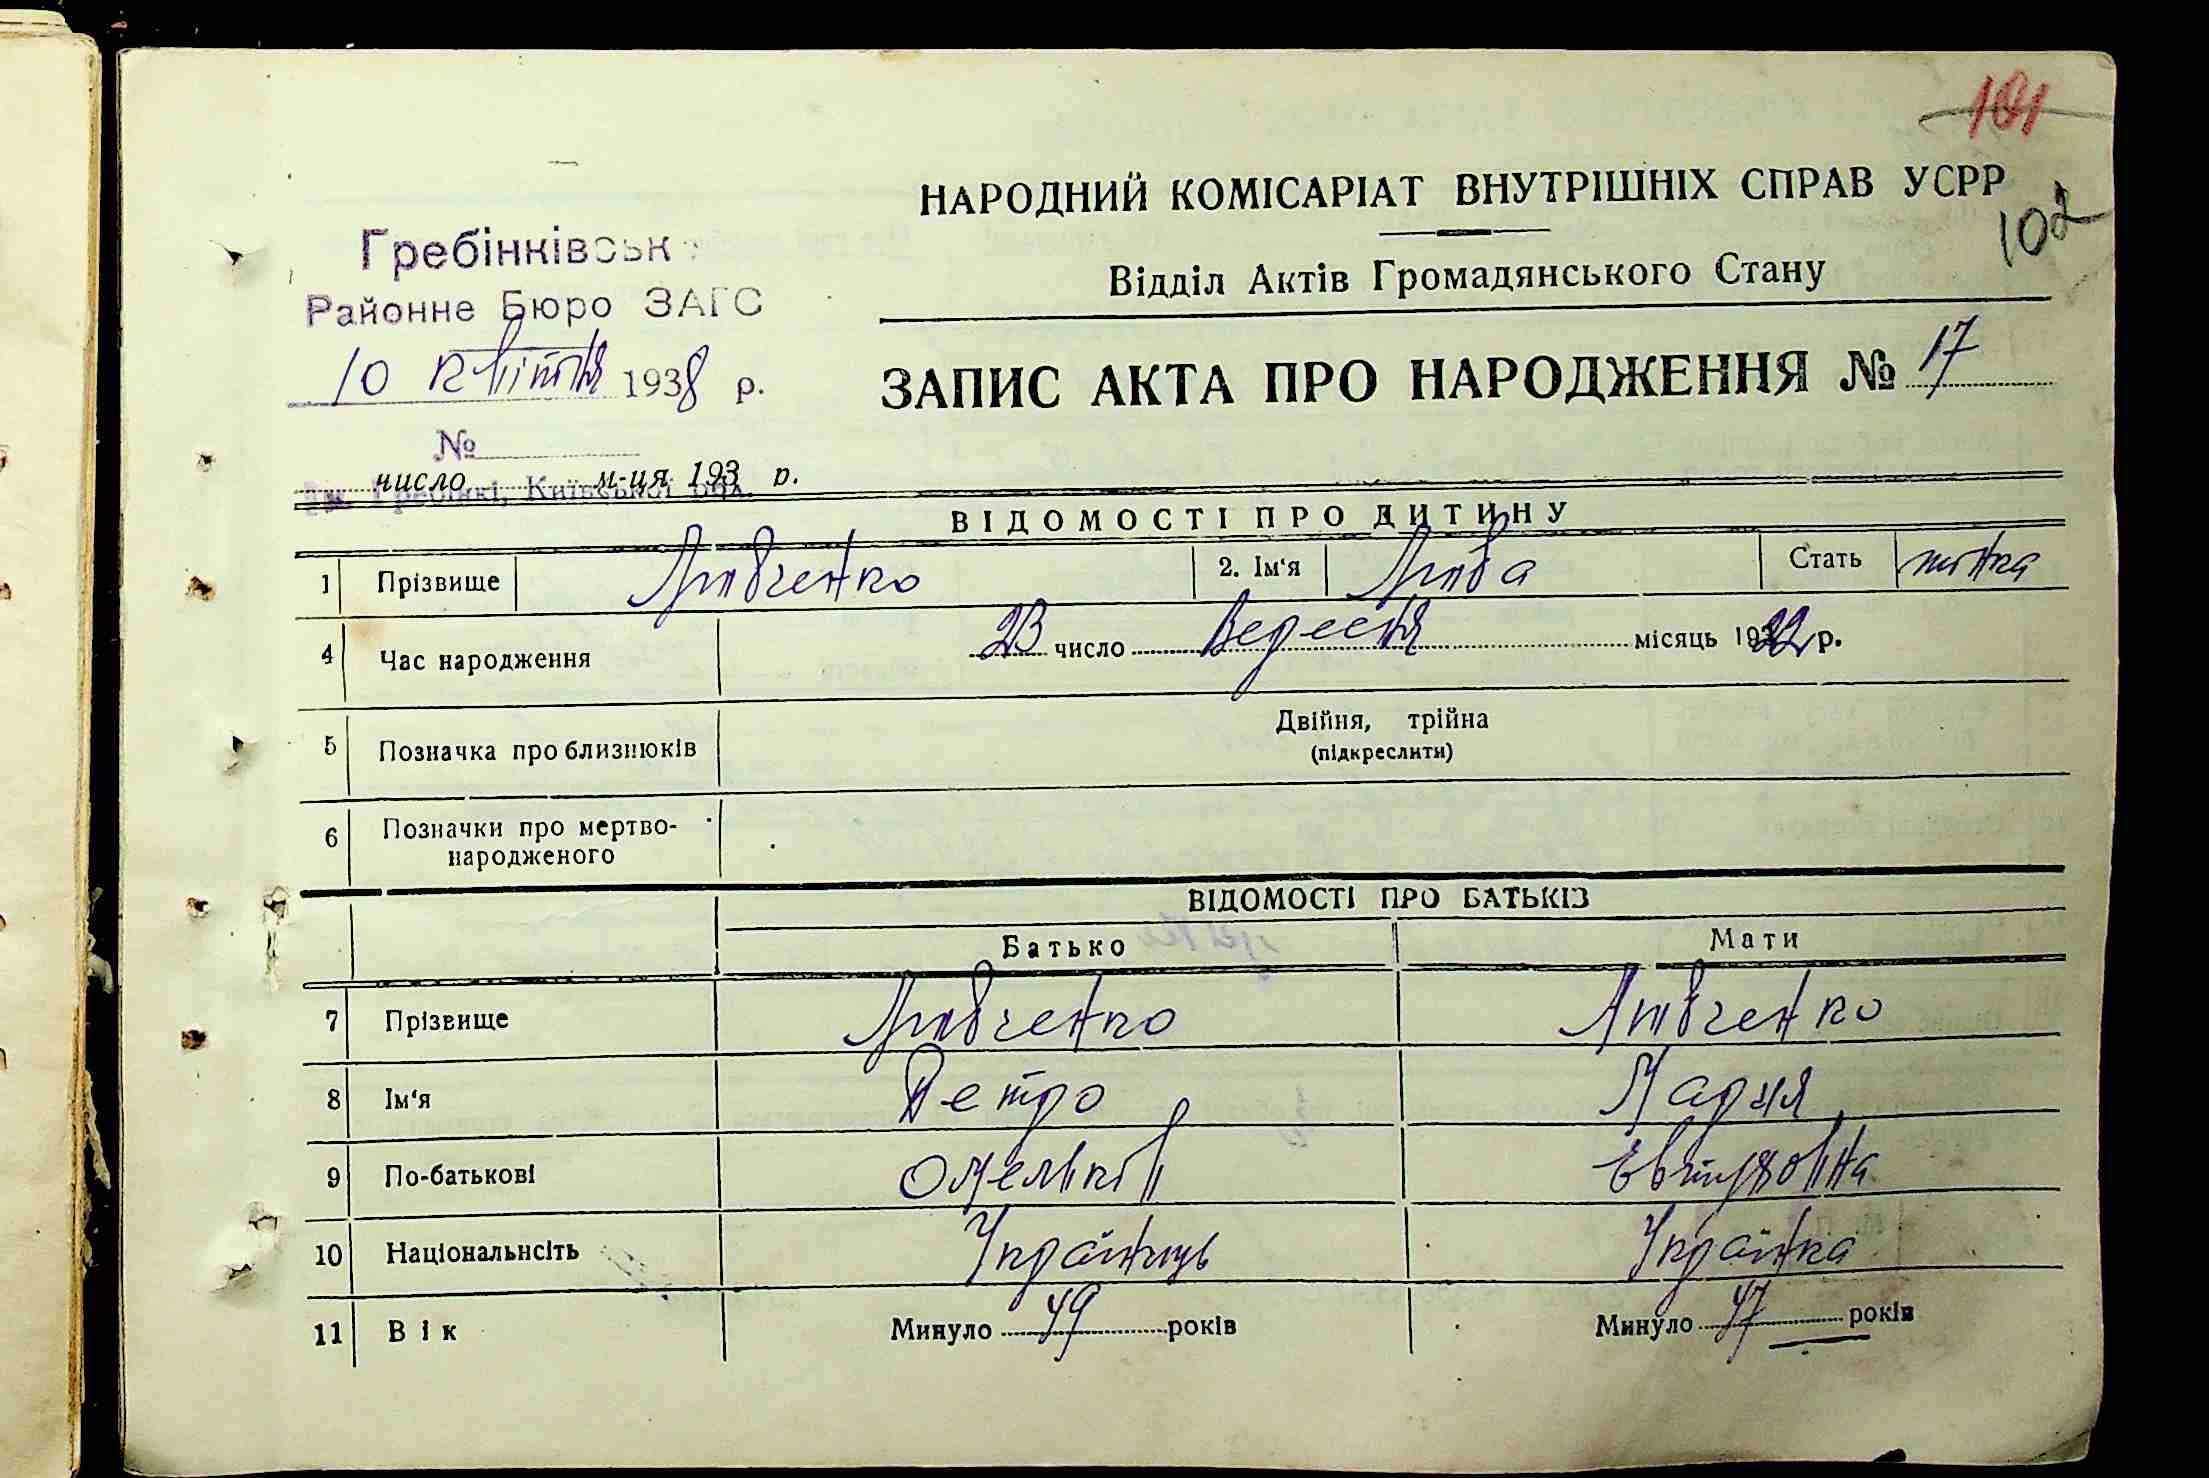 101
НАРОДНИЙ КОМІСАРІАТ ВНУТРІШНІХ СПРАВ УСРР
102
Гребінківськ
Відділ Актів Громадянського Стану
Районне Бюро ЗАГС
10 квітня 1938 р.
ЗАПИС АКТА ПРО НАРОДЖЕННЯ № 17
№
число м-ця 193 р.
Гребінкі, Київської обл.
ВІДОМОСТІ ПРО ДИТИНУ
1 Прізвище Лювченко 2. Ім‘я Люба Стать жінка
4 Час народження 23 число Вересня місяць 1922 р.
5 Позначка про близнюків Двійня, трійна
(підкреслити)
6 Позначки про мертво-
народженого
ВІДОМОСТІ ПРО БАТЬКІВ
Батько Мати
7 Прізвище Лювченко Лювченко
8 Ім‘я Петро Мария
9 По-батькові Омельків
10 Національнсіть Українець Українка
11 Вік Минуло 49 років Минуло 47 років